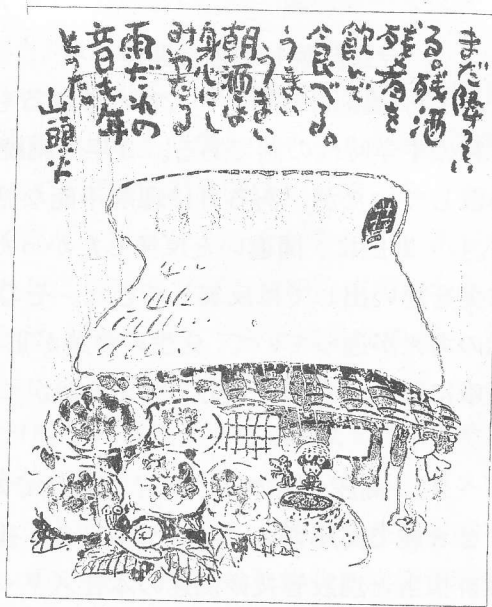 まだ降つてい
る。残酒
残肴を
飲んで
食べる。
うまい
うまい、
朝酒は
身心にし
みわたる
雨だれの
音も年
とつた
山頭火